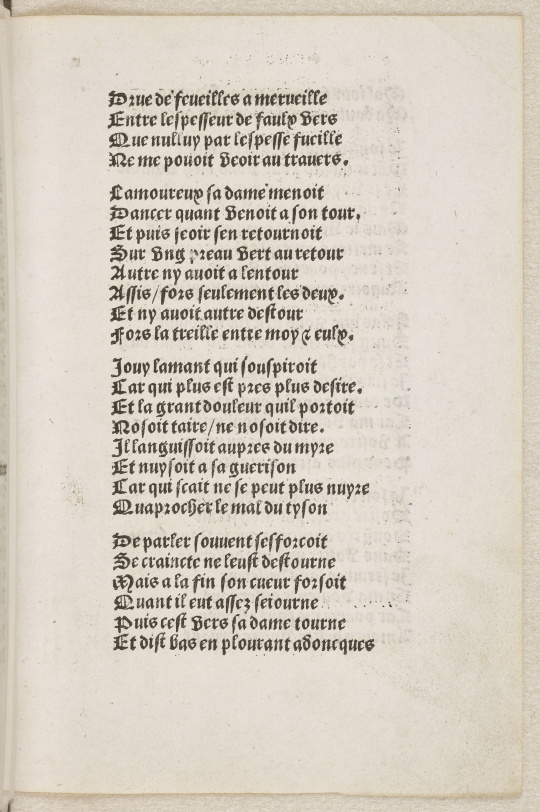 Drue de feueilles a merueille
Entre lespesseur de faulx vers
Que nulluy par lespesse fueille
Ne me pouoit veoir au trauers.
Lamoureux sa dame menoit
Dancer quant venoit a son tour.
Et puis seoir sen retournoit
Sur vng preau vert au retour
Autre ny auoit a lentour
Assis/fors seulement les deux.
Et ny auoit autre destour
Fors la treille entre moy & eulx.
Jouy lamant qui souspiroit
Car qui plus est pres plus desire.
Et la grant douleur quil portoit
Nosoit taire/ne nosoit dire.
Il languissoit aupres du myre
Et nuysoit a sa guerison
Car qui scait ne se peut plus nuyre
Quaprocher le mal du tyson
De parler souuent sesforcoit
Se craincte ne leust destourne
Mais a la fin son cueur forsoit
Quant il eut assez seiourne
Puis cest vers sa dame tourne
Et dist bas en plourant adoncques